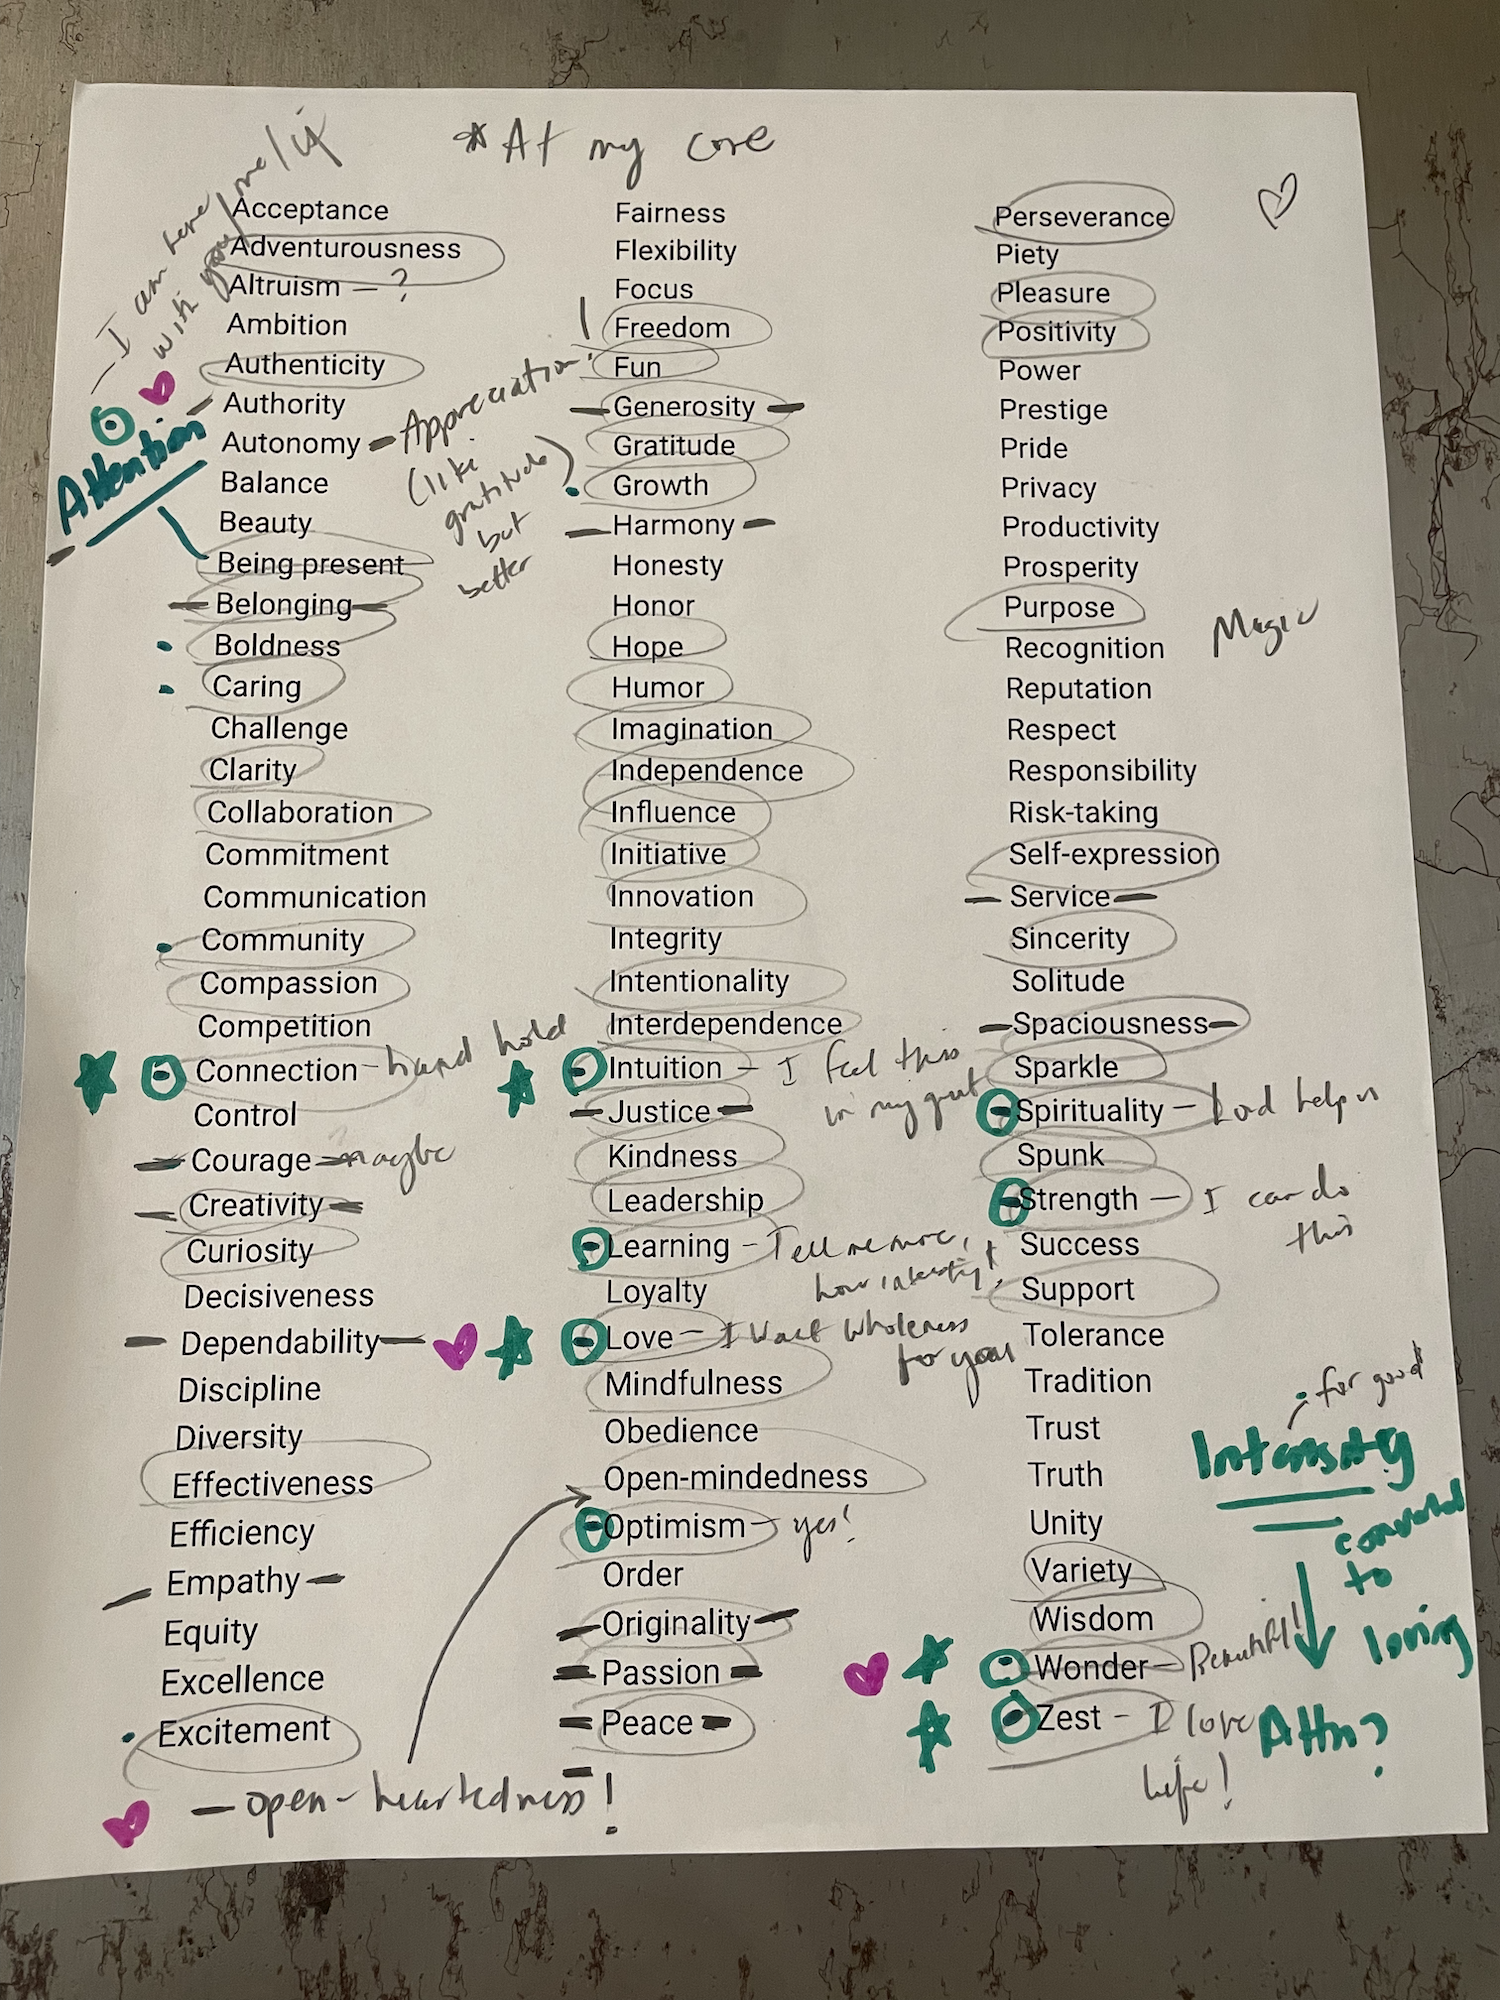 * At my core
I am here
with you / me / it
Attention
Acceptance
Adventurousness
Altruism — ?
Ambition
Authenticity
Authority
Autonomy
Balance
Beauty
Being present
Belonging
Boldness
Caring
Challenge
Clarity
Collaboration
Commitment
Communication
Community
Compassion
Competition
Connection - hand hold
Control
Courage - maybe
Creativity
Curiosity
Decisiveness
Dependability
Discipline
Diversity
Effectiveness
Efficiency
Empathy
Equity
Excellence
Excitement
- open-heartedness!
Appreciation!
(like
gratitude)
but
better
Fairness
Flexibility
Focus
Freedom
Fun
Generosity
Gratitude
Growth
Harmony
Honesty
Honor
Hope
Humor
Imagination
Independence
Influence
Initiative
Innovation
Integrity
Intentionality
Interdependence
Intuition - I feel this
in my gut
Justice
Kindness
Leadership
Learning - Tell me more,
how
Loyalty
Love - I want wholeness
for you
Mindfulness
Obedience
Open-mindedness
Optimism - yes!
Order
Originality
Passion
Peace
Perseverance
Piety
Pleasure
Positivity
Power
Prestige
Pride
Privacy
Productivity
Prosperity
Purpose
Magic
Recognition
Reputation
Respect
Responsibility
Risk-taking
Self-expression
Service
Sincerity
Solitude
Spaciousness
Sparkle
Spirituality - Lord help us
Spunk
Strength - I can do
this
Success
Support
Tolerance
Tradition
Trust
Truth
Unity
Variety
Wisdom
Wonder - Beautiful!
Zest - I love
life!
for good
Intensity
to
loving
Attn?